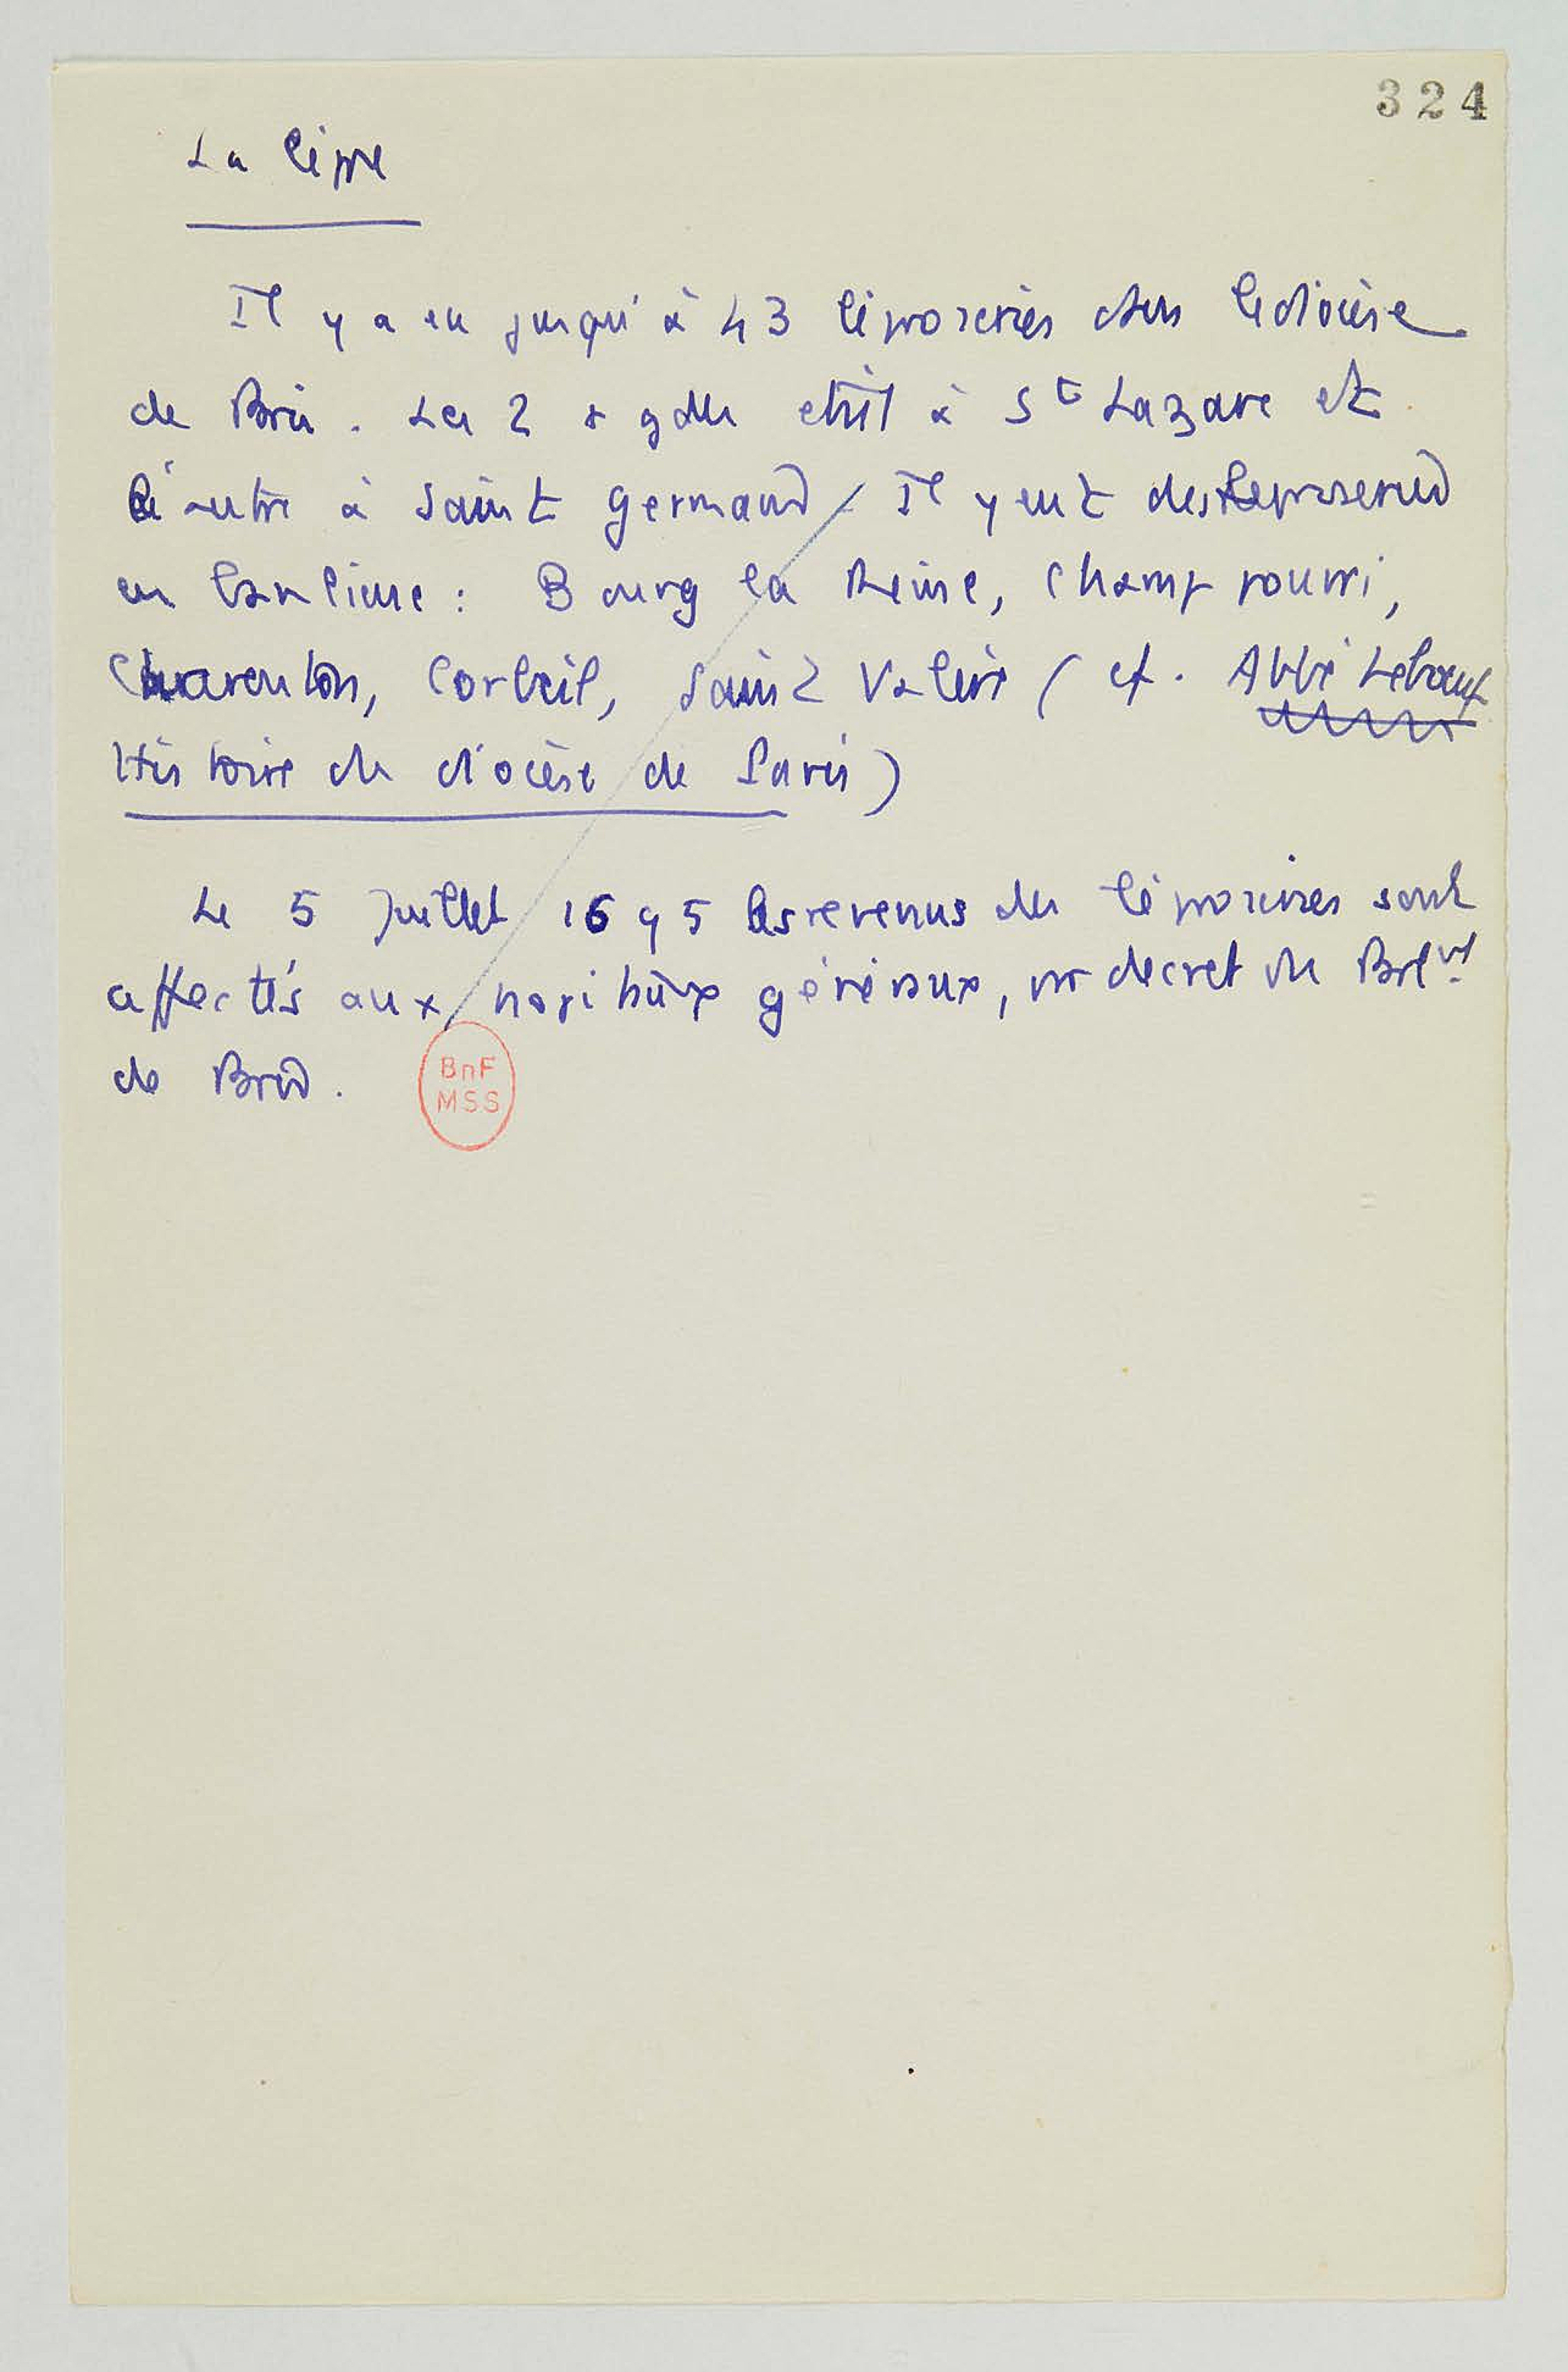 324
La lèpre
Il y a eu jusqu'à 43 léproseries dans le diocèse
de Paris. Les 2 + gdes était à St Lazare et
l'autre à Saint Germain / Il y eut des léproseries
en banlieue : Bourg la Reine, Champ pourri,
Charenton, Corbeil, Saint Valère ( cf. Abbé Leboeuf
Histoire du diocèse de Paris)
Le 5 Juillet 1695 les revenus des léproseries sont
affectés aux hopitaux généraux, par decret du
de Paris.
BnF
MSS